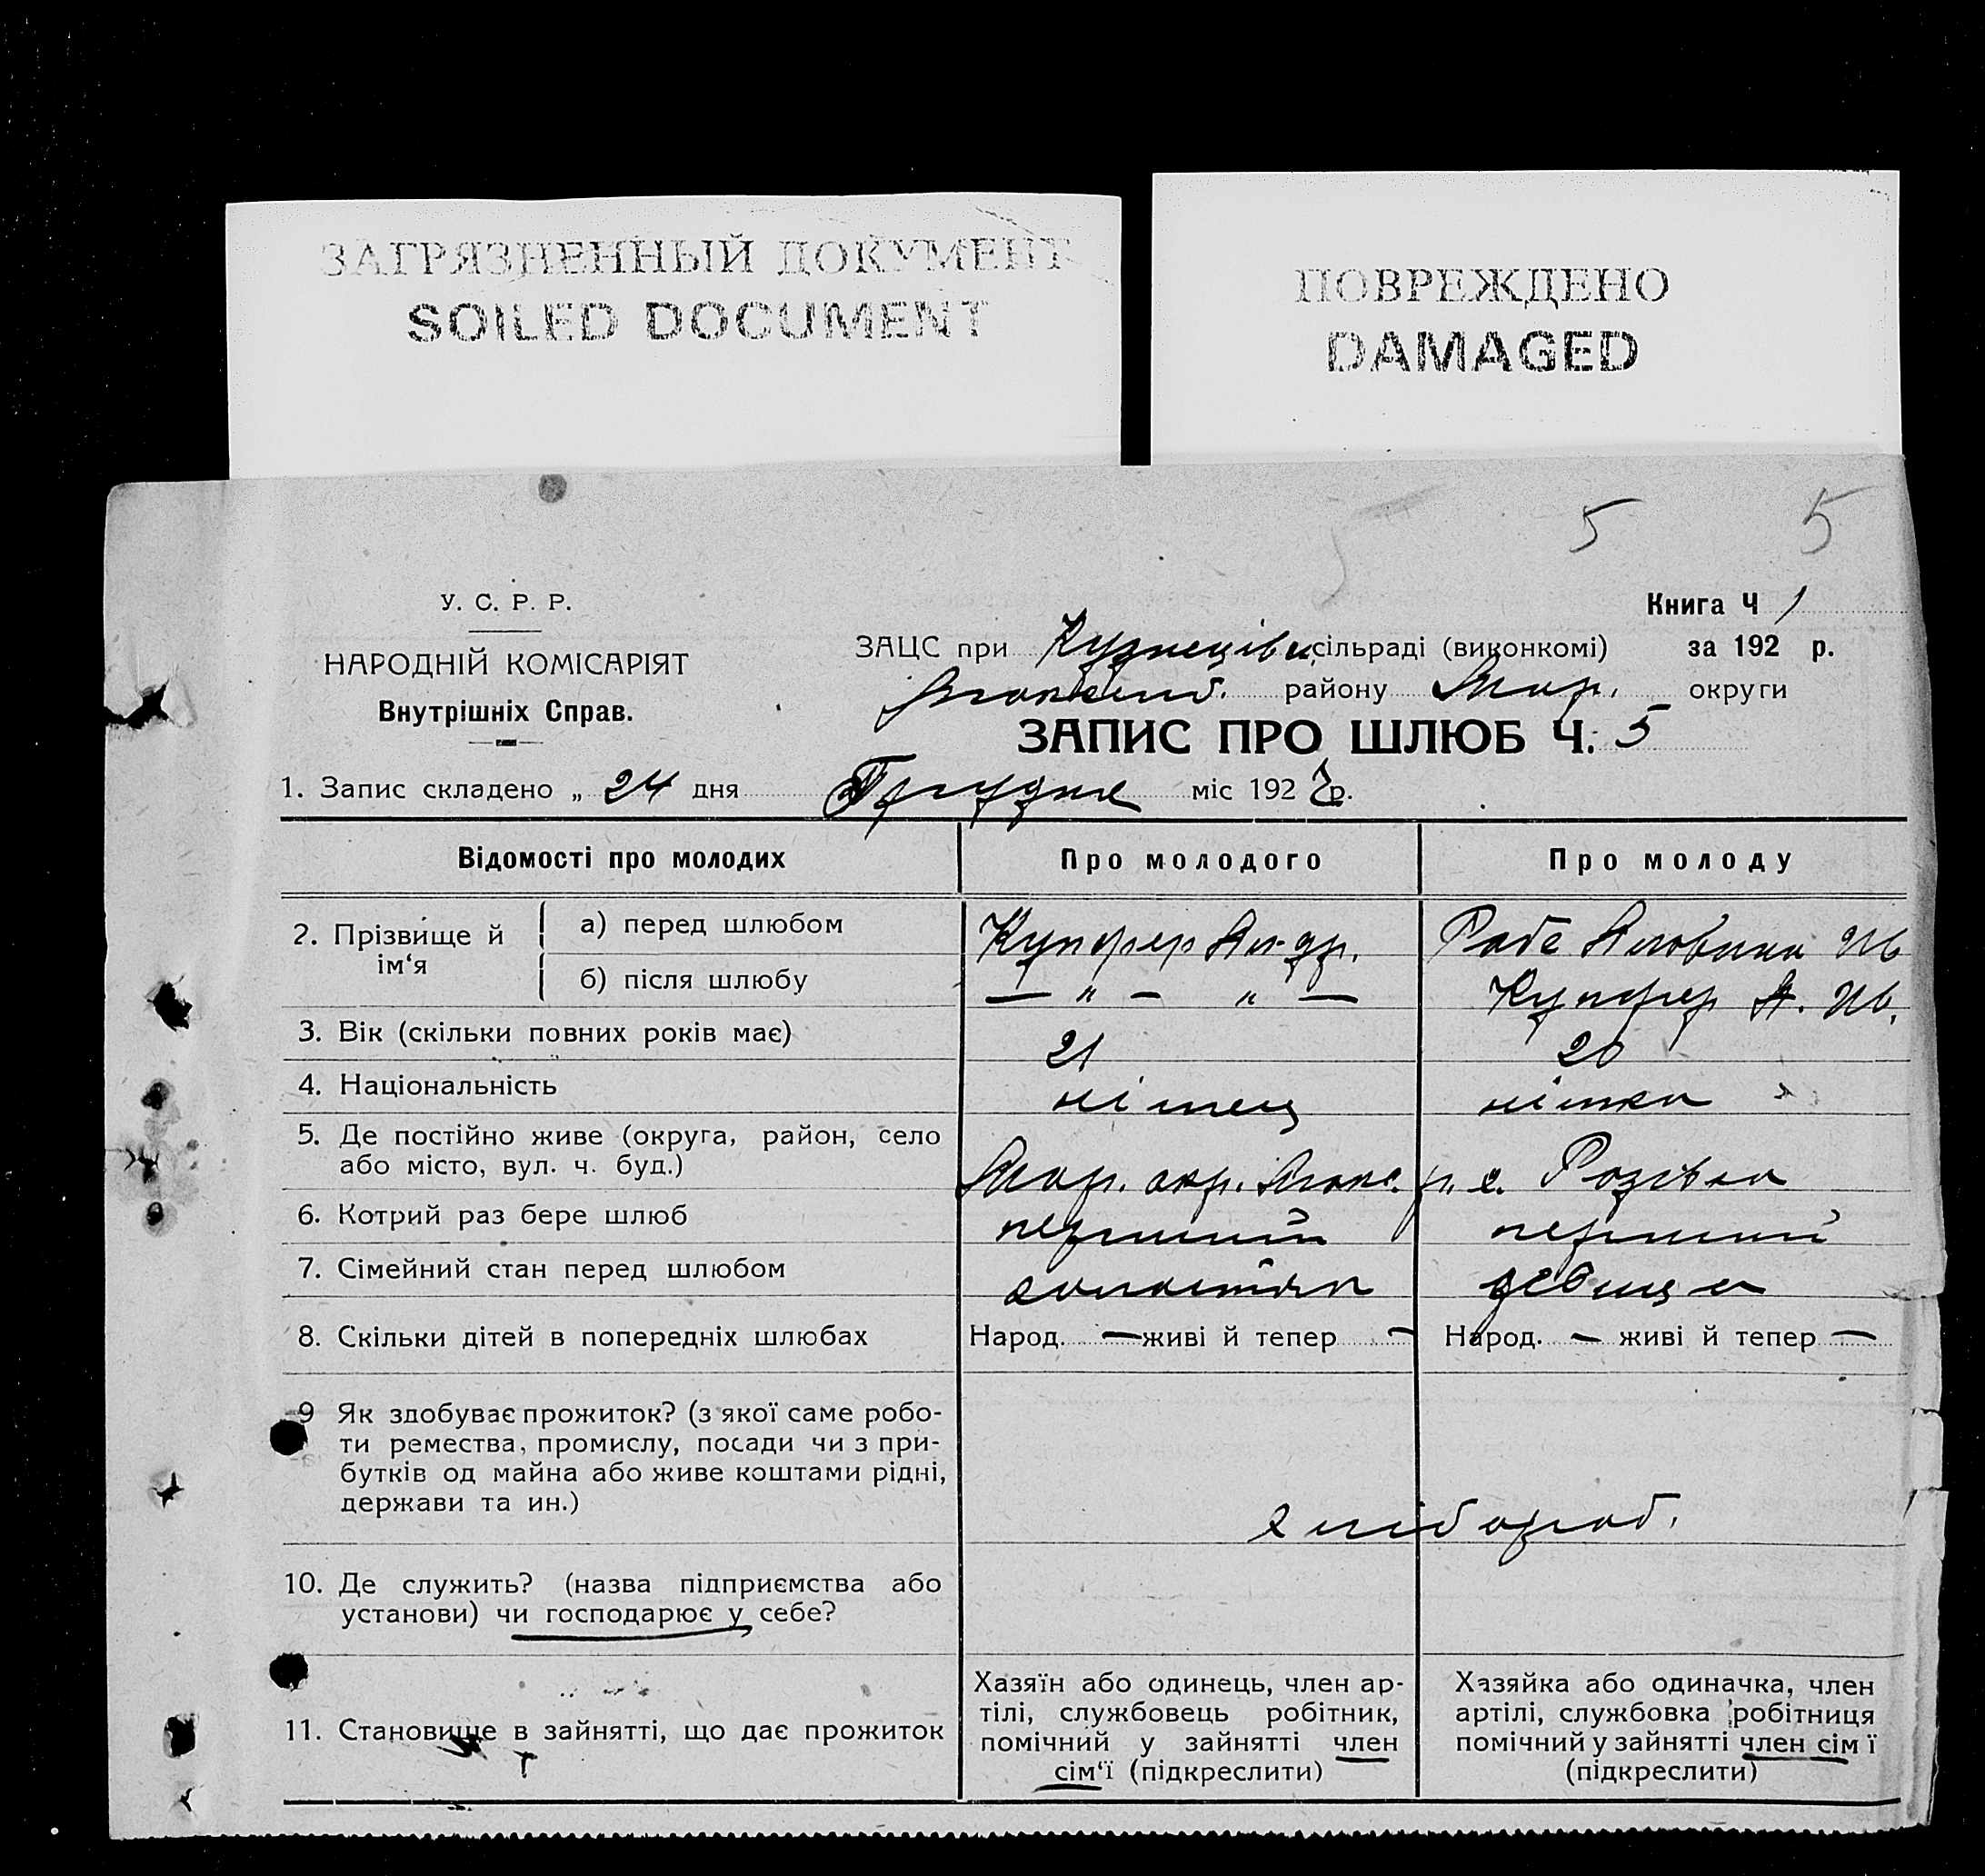 ЗАГРЯЗНЕННЫЙ ДОКУМЕНТ
SOILED DOCUMENT
ПОВРЕЖДЕНО
DAMAGED
5 5 5
У. С. Р. Р.
НАРОДНІЙ КОМІСАРІЯТ
Внутрішніх Справ.
Книга Ч 1
ЗАЦС при Кузнецівк. сільраді (виконкомі) за 192 р.
району Мар. округи
ЗАПИС ПРО ШЛЮБ Ч. 5
1. Запис складено „ 24 дня Грудня міс 1927 р.
Відомості про молодих
Про молодого
Про молоду
2. Прізвище й ім‘я
а) перед шлюбом
Купфер Ал-др.
Раве Ів
б) після шлюбу
— „ — „ —
Купфер А. Ів.
3. Вік (скільки повних років має)
21
20
4. Національність
німець
німка
5. Де постійно живе (округа, район, село
або місто, вул. ч. буд.)
Мар. окр. р. с. Розівка
6. Котрий раз бере шлюб
перший
перший
7. Сімейний стан перед шлюбом
холостяк
девица
8. Скільки дітей в попередніх шлюбах
Народ. — живі й тепер —
Народ. — живі й тепер —
9 Як здобуває прожиток? (з якої саме робо-
ти ремества, промислу, посади чи з при-
бутків од майна або живе коштами рідні,
держави та ин.)
хлібороб.
10. Де служить? (назва підприємства або
установи) чи господарює у себе?
11. Становище в зайнятті, що дає прожиток
Хазяїн або одинець, член ар-
тілі, службовець робітник,
помічний у зайнятті член
сім‘ї (підкреслити)
Хазяйка або одиначка, член
артілі, службовка робітниця
помічний у зайнятті член сім ї
(підкреслити)